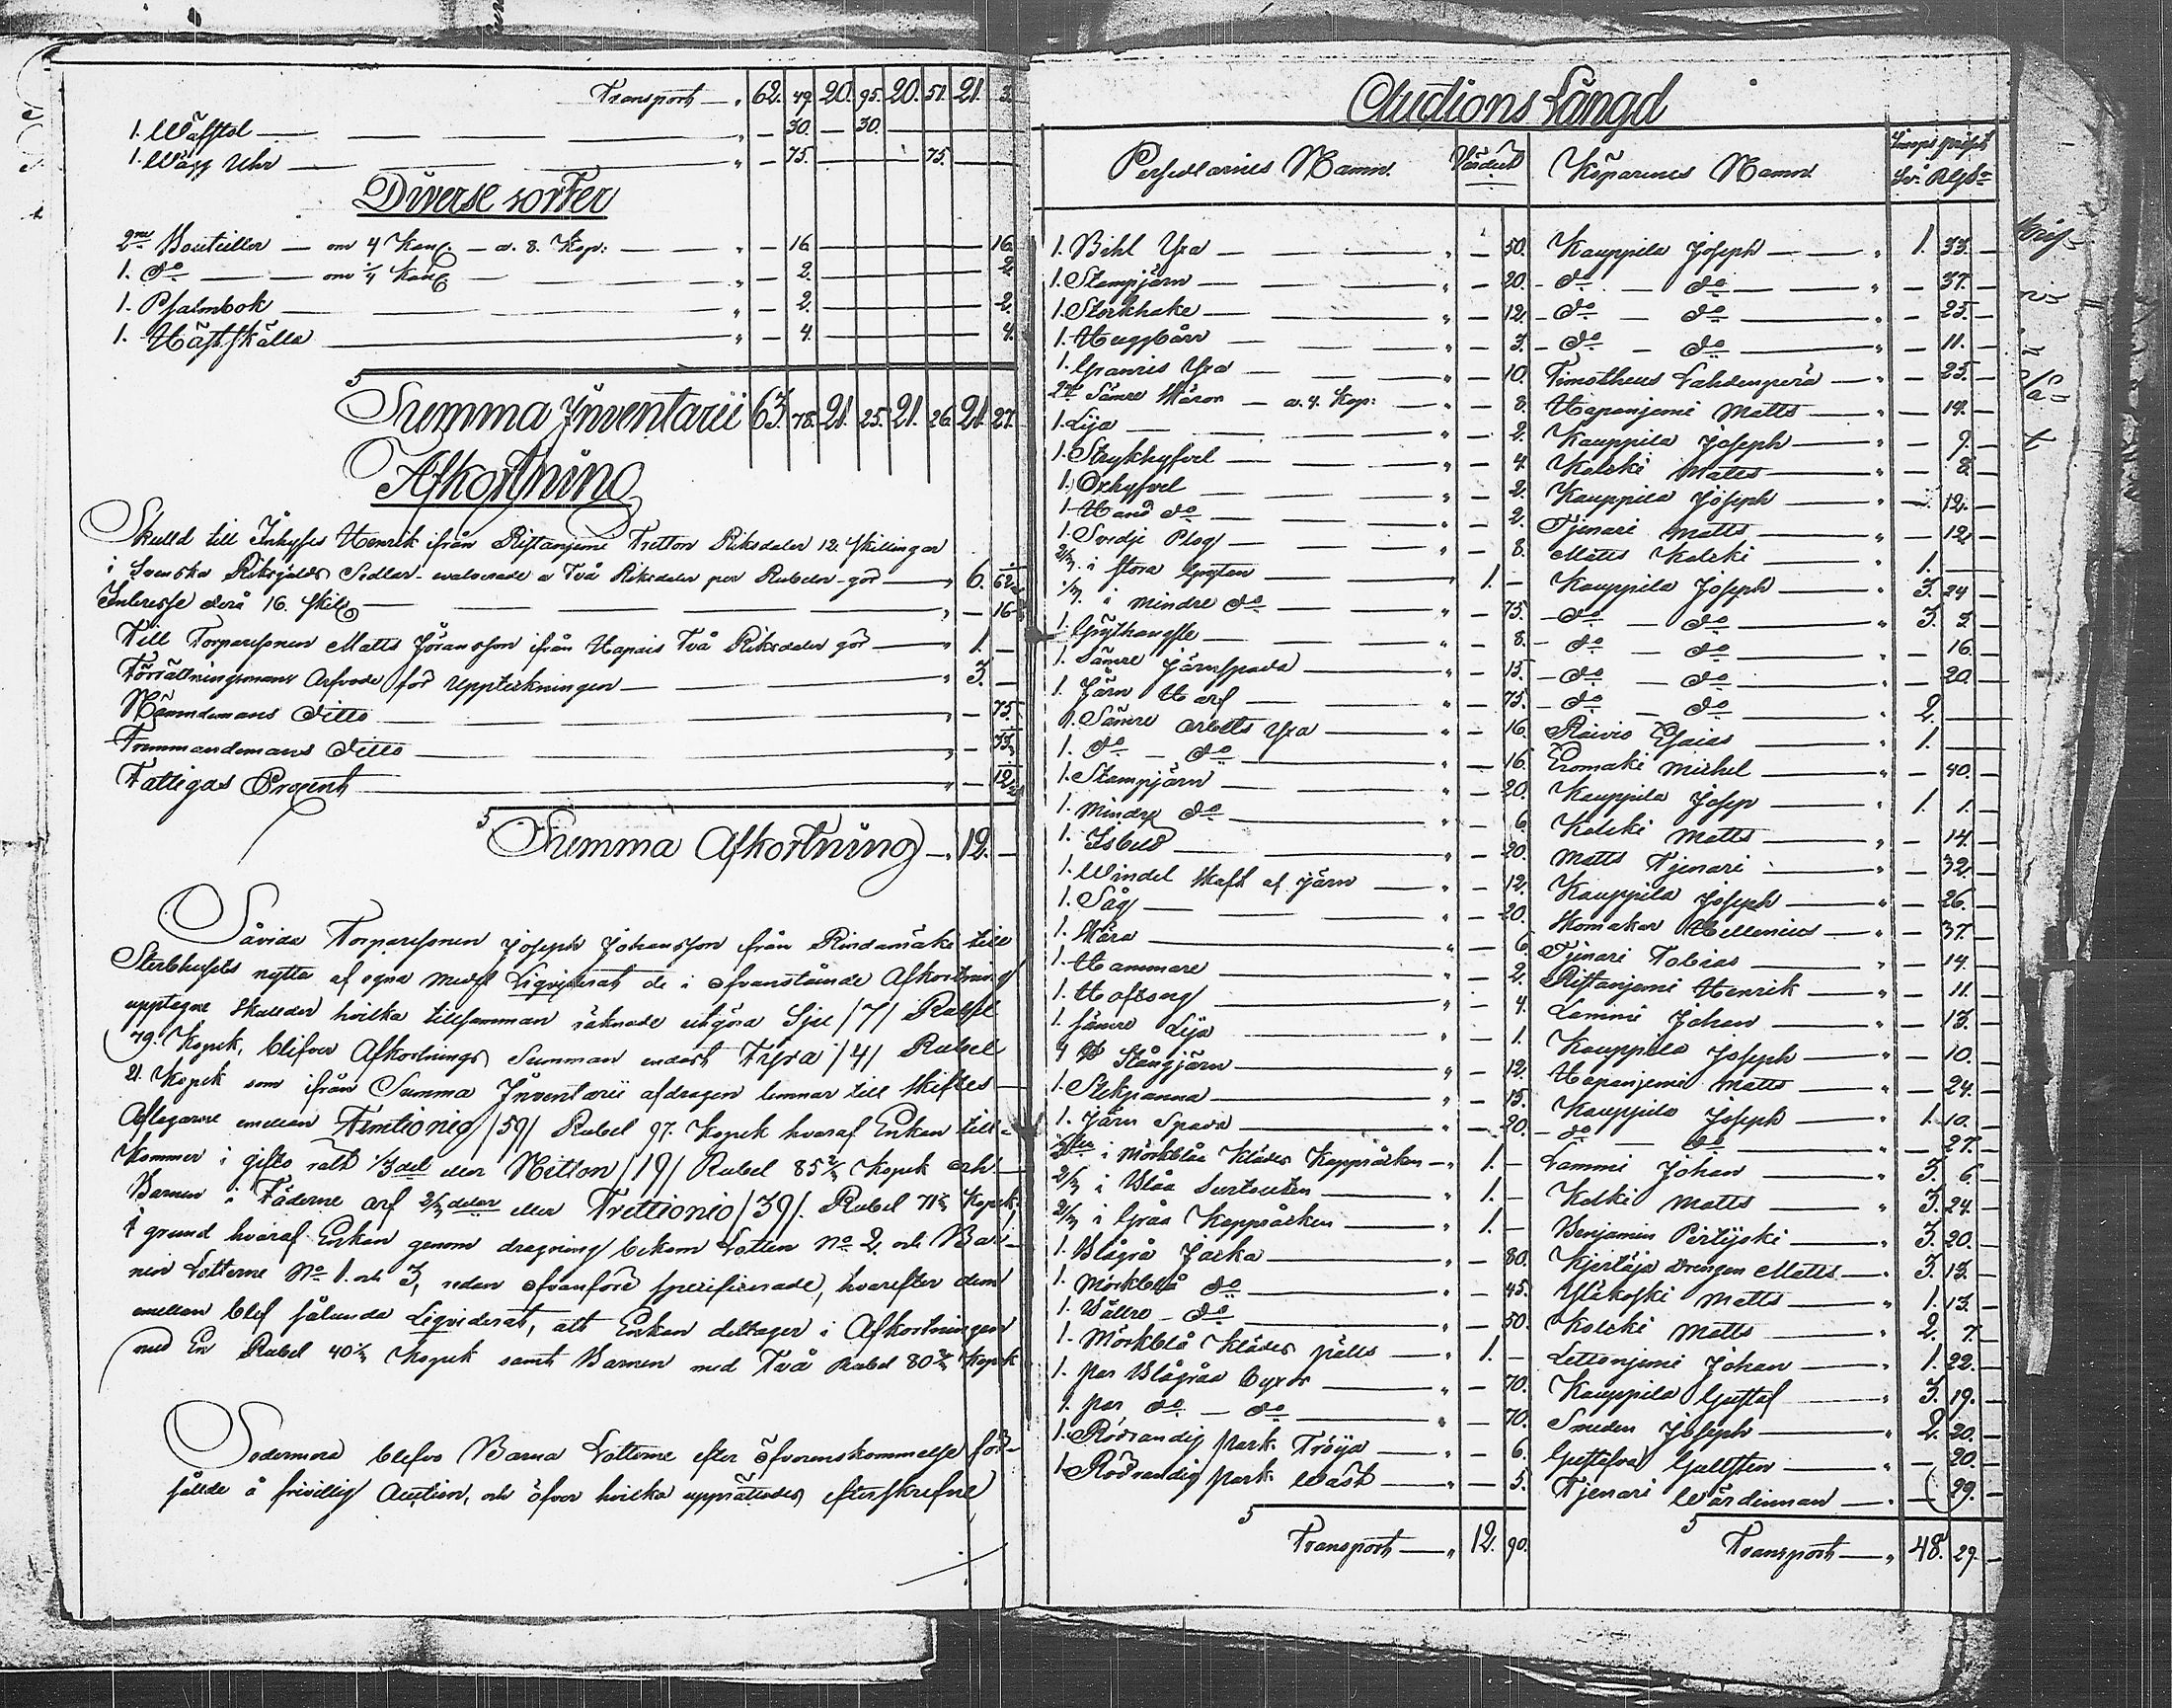 Transport — " 62. 49. 20. 95. 20. 51. 21. 3.
1. Wäfstol — " — 30. — 30.
1. Wägg Uhr — " — 75. — 75.
Diverse sorter
2ne Bouteiller — om 4 Kan — a. 8. Kop: " — 16. — 16.
1. do — om ¼ Kan — " — 2. — 2.
1. Psalmbok — " — 2. — 2.
1. Häst skälla — " — 4. — 4.
Summa Inventarii 63. 78. 21. 25. 21. 26. 21. 27.
Afkortning
Skuld till Inhyses Henrik ifrån Ristaniemi Tretton Riksdaler 12. skillingar
i Svenska Riksgälds Sedlar evalverade a Två Riksdaler per Rubeln gör — " 6. 62
Interesse derå 16. skil — " — 16
Till Torparesonen Matts Jöransson ifrån Hapais Två Riksdaler gör — " 1. —
Förrättningsmans Arfvode för Uppteckningen — " 3. —
Nämndemans Ditto — " — 75.
Fremmandemans Ditto — " — 33
Fattigas Procent — " — 12
Summa Afkortning — " 12. —
Såvida Torparesonen Joseph Johansson från Rindamäki till
Sterbhusets nytta af egna medel Liqviderat de i ofvanstående Afkortning
upptagne skulder hvilka tillsamman räknade utgöra Sju /7/ Rubel
79. Kopek, blifver Afkortnings Summan endast Fyra /4/ Rubel
21. Kopek som ifrån Summa Inventarii afdragen lemnar till skiftes
Aflegarne emellan Femtionio /59/ Rubel 97. Kopek hvaraf Enkan till=
kommer i gifto rätt 1/3 del eller Nitton /19/ Rubel 85 2/3 Kopek och
Barnen i Fäderne arf 2/3 delar eller Trettionio /39/. Rubel 71 1/3 Kopek,
i grund hvaraf Enkan genom dragning bekom Lotten No 2. och Bar=
nen Lotterne No 1. och 3, redan ofvanföre specificerade, hvarefter dem
emellan blef sålunda Liqviderat, att Enkan deltager i Afkortningen
med En Rubel 40 1/3 Kopek samt Barnen med Två Rubel 80 2/3 Kopek
Sedermera blefvo Barna Lotterne efter öfverenskommelse för=
sålde å frivillig Auction, och öfver hvilka upprättades efterskrefne
Auctions Längd
Persedlarnes Namn. Värdet Köparenes Namn. Inrops priset Sr. Rls.
1. Bihl Yxa — " — 50. Kauppila Joseph — " 1. 33. —
1. Stampjärn — " — 20. — do — do — " — 37. —
1. Storkhake — " — 12. — do — do — " — 25. —
1. Huggbårr — " — 3. — do — do — " — 11. —
1. Granris Yxa — " — 10. Timotheus Lahdenperä — " — 25. —
2ne Sämre Skäror — a. 4. Kop: — " — 8. Hapaniemi Matts — " — 19. —
1. Lija — " — 2. Kauppila Joseph — " — 9. —
1. Strykhyfvel — " — 4. Kelcki Matts — " — 8. —
1. Oxhyfvel — " — 2. Kauppila Joseph — " — 12. —
1. Hand do — " — 2. Tjenari Matts — " — 12. —
1. Svedje Plog — " — 8. Matts Kelcki — " 1. —
2/3. i stora Grytan — " 1. — Kauppila Joseph — " 3. 24 —
1/3. i mindre do — " — 75. — do — do — " 3. 3. —
1. Grythangsle — " — 8. — do — do — " — 16. —
1. Sämre Järnspada — " — 15. — do — do — " — 20. —
1. Järn Harf — " — 75. — do — do — " 2. —
1. Sämre arbets Yxa — " — 16. Raivio Esaias — " 1. —
1. do — do — " — 16. Eromäki Michel — " — 40. —
1. Stampjärn — " — 20. Kauppila Josep — " 1. 1. —
1. Mindre do — " — 6. Kelcki Matts — " — 14. —
1. Isbill — " — 20. Matts Tjenari — " — 32. —
1. Windel skaft af Järn — " — 12. Kauppila Joseph — " — 26. —
1. Såg — " — 20. Skomakar Hellenius — " — 37. —
1. Skära — " — 6. Tjenari Tobias — " — 14. —
1. Hammare — " — 2. Ristaniemi Henrik — " — 11. —
1. Hoftång — " — 4. Lammi Johan — " — 13. —
1. sämre Lija — " — 1. Kauppila Joseph — " — 10. —
9 ℔ Stångjärn — " — 12. Hapaniemi Matts — " — 24. —
1. Stekpanna — " — 15. Kauppila Joseph — " 1. 10. —
1. Järn Spada — " — 20. — do — do — " — 27. —
i Mörkblåa Klädes Kapprocken — " 1. — Lammi Johan — " 3. 6. —
2/3 i Blåa Surtouten — " 1. — Kelki Matts — " 3. 24. —
2/3 i Gråa Kapprocken — " 1. — Benjamin Pertyski — " 3. 20. —
1. Blågrå Jacka — " — 80. Kjertäjä drengen Matts — " 3. 13. —
1. Mörkblå do — " — 45. Ylikoski Matts — " 1. 13. —
1. Bättre — do — " — 50. Kelcki Matts — " 2. 7. —
1. Mörkblå Klädes pälts — " 1. — Lettoniemi Johan — " 1. 22. —
1. par Blågråa Byxor — " — 70. Kauppila Gustaf — " 3. 19. —
1. par do — do — " — 70. Smeden Joseph — " 2. 20. —
1. Rödrandig park. Tröija — " — 6. Gustafva Gullsten — " — 20. —
1. Rödrandig park. Wäst — " — 5. Tjenari Wärdinnan — " — 29. —
Transport — " 12. 90. Transport — " 48. 29. —